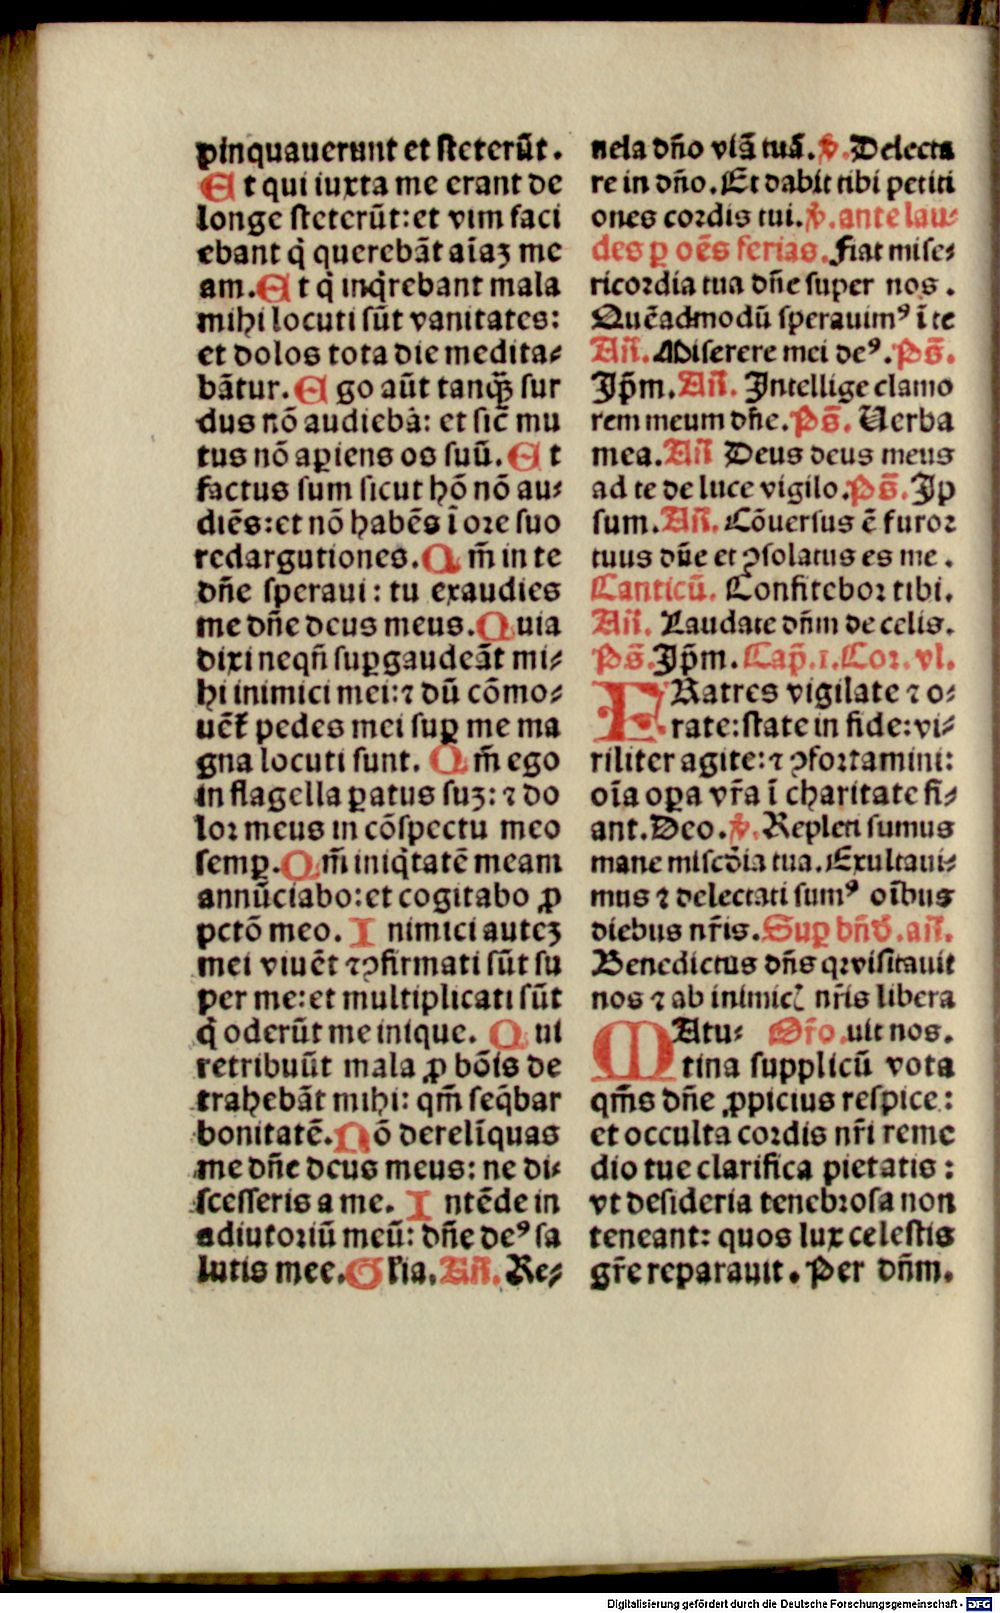 pinquauerunt et steterūt.
Et qui iuxta me erant de
longe steterūt: et vim faci
ebant q̇ querebāt aīaꝫ me
am. Et q̇ inq̇rebant mala
mihi locuti sūt vanitates:
et dolos tota die medita⸗
bātur. Ego aūt tanq̄ꝫ sur
dus nō audiebā: et sic̄ mu
tus nō aꝑiens os suū. Et
factus sum sicut hō nō au⸗
diēs: et nō habēs ī ore suo
redargutiones. Qm̄ in te
dn̄e speraui: tu exaudies
me dn̄e deus meus. Quia
dixi neqn̄ suꝑgaudeāt mi⸗
hi inimici mei: ⁊ dū cōmo⸗
uēt᷑ pedes mei suꝑ me ma
gna locuti sunt. Qm̄ ego
in flagella ꝑatus suꝫ: ⁊ do
lor meus in cōspectu meo
semꝑ. Qm̄ iniq̇tatē meam
annūciabo: et cogitabo ꝓ
pctō meo. Inimici auteꝫ
mei viuēt ⁊ ꝯfirmati sūt su
per me: et multiplicati sūt
q̇ oderūt me inique. Qui
retribuūt mala ꝓ bōis de
trahebāt mihi: qm̄ seq̄bar
bonitatē. Nō derelīquas
me dn̄e deus meus: ne di⸗
scesseris a me. Intēde in
adiutoriū meū: dn̄e deꝰ sa
lutis mee. Gl̄ia. Añ. Re⸗
uela dn̄o viā tuā. ℣. Delecta
re in dn̄o. Et dabit tibi petiti
ones cordis tui. ℣. ante lau⸗
des ꝑ oēs ferias. Fiat mise⸗
ricordia tua dn̄e super nos.
Quēadmodū sperauimꝰ ī te
Añ. Miserere mei deꝰ. Ps̄.
Ip̄m. Añ. Intellige clamo
rem meum dn̄e. Ps̄. Uerba
mea. Añ Deus deus meus
ad te de luce vigilo. Ps̄. Ip
sum. Añ. Cōuersus ē furor
tuus dn̄e et ꝯsolatus es me.
Canticū. Confitebor tibi.
Añ. Laudate dn̄m de celis.
Ps̄. Ip̄m. Cap̄. 1. Cor. vl.
FRatres vigilate ⁊ o⸗
rate: state in fide: vi⸗
riliter agite: ⁊ ꝯfortamini:
oīa oꝑa vr̄a ī charitate fi⸗
ant. Deo. ℣. Repleti sumus
mane miscōia tua. Exultaui⸗
mus ⁊ delectati sumꝰ oībus
diebus nr̄is. Suꝑ bn̄ds. añ.
Benedictus dn̄s qꝛ visitauit
nos ⁊ ab inimicꝭ nr̄is libera
MAtu⸗ Or̄o. uit nos.
tina supplicū vota
qm̄s dn̄e ꝓpicius respice:
et occulta cordis nr̄i reme
dio tue clarifica pietatis:
vt desideria tenebrosa non
teneant: quos lux celestis
gr̄e reparauit. Per dn̄m.
Digitalisierung gefördert durch die Deutsche Forschungsgemeinschaft - DFG